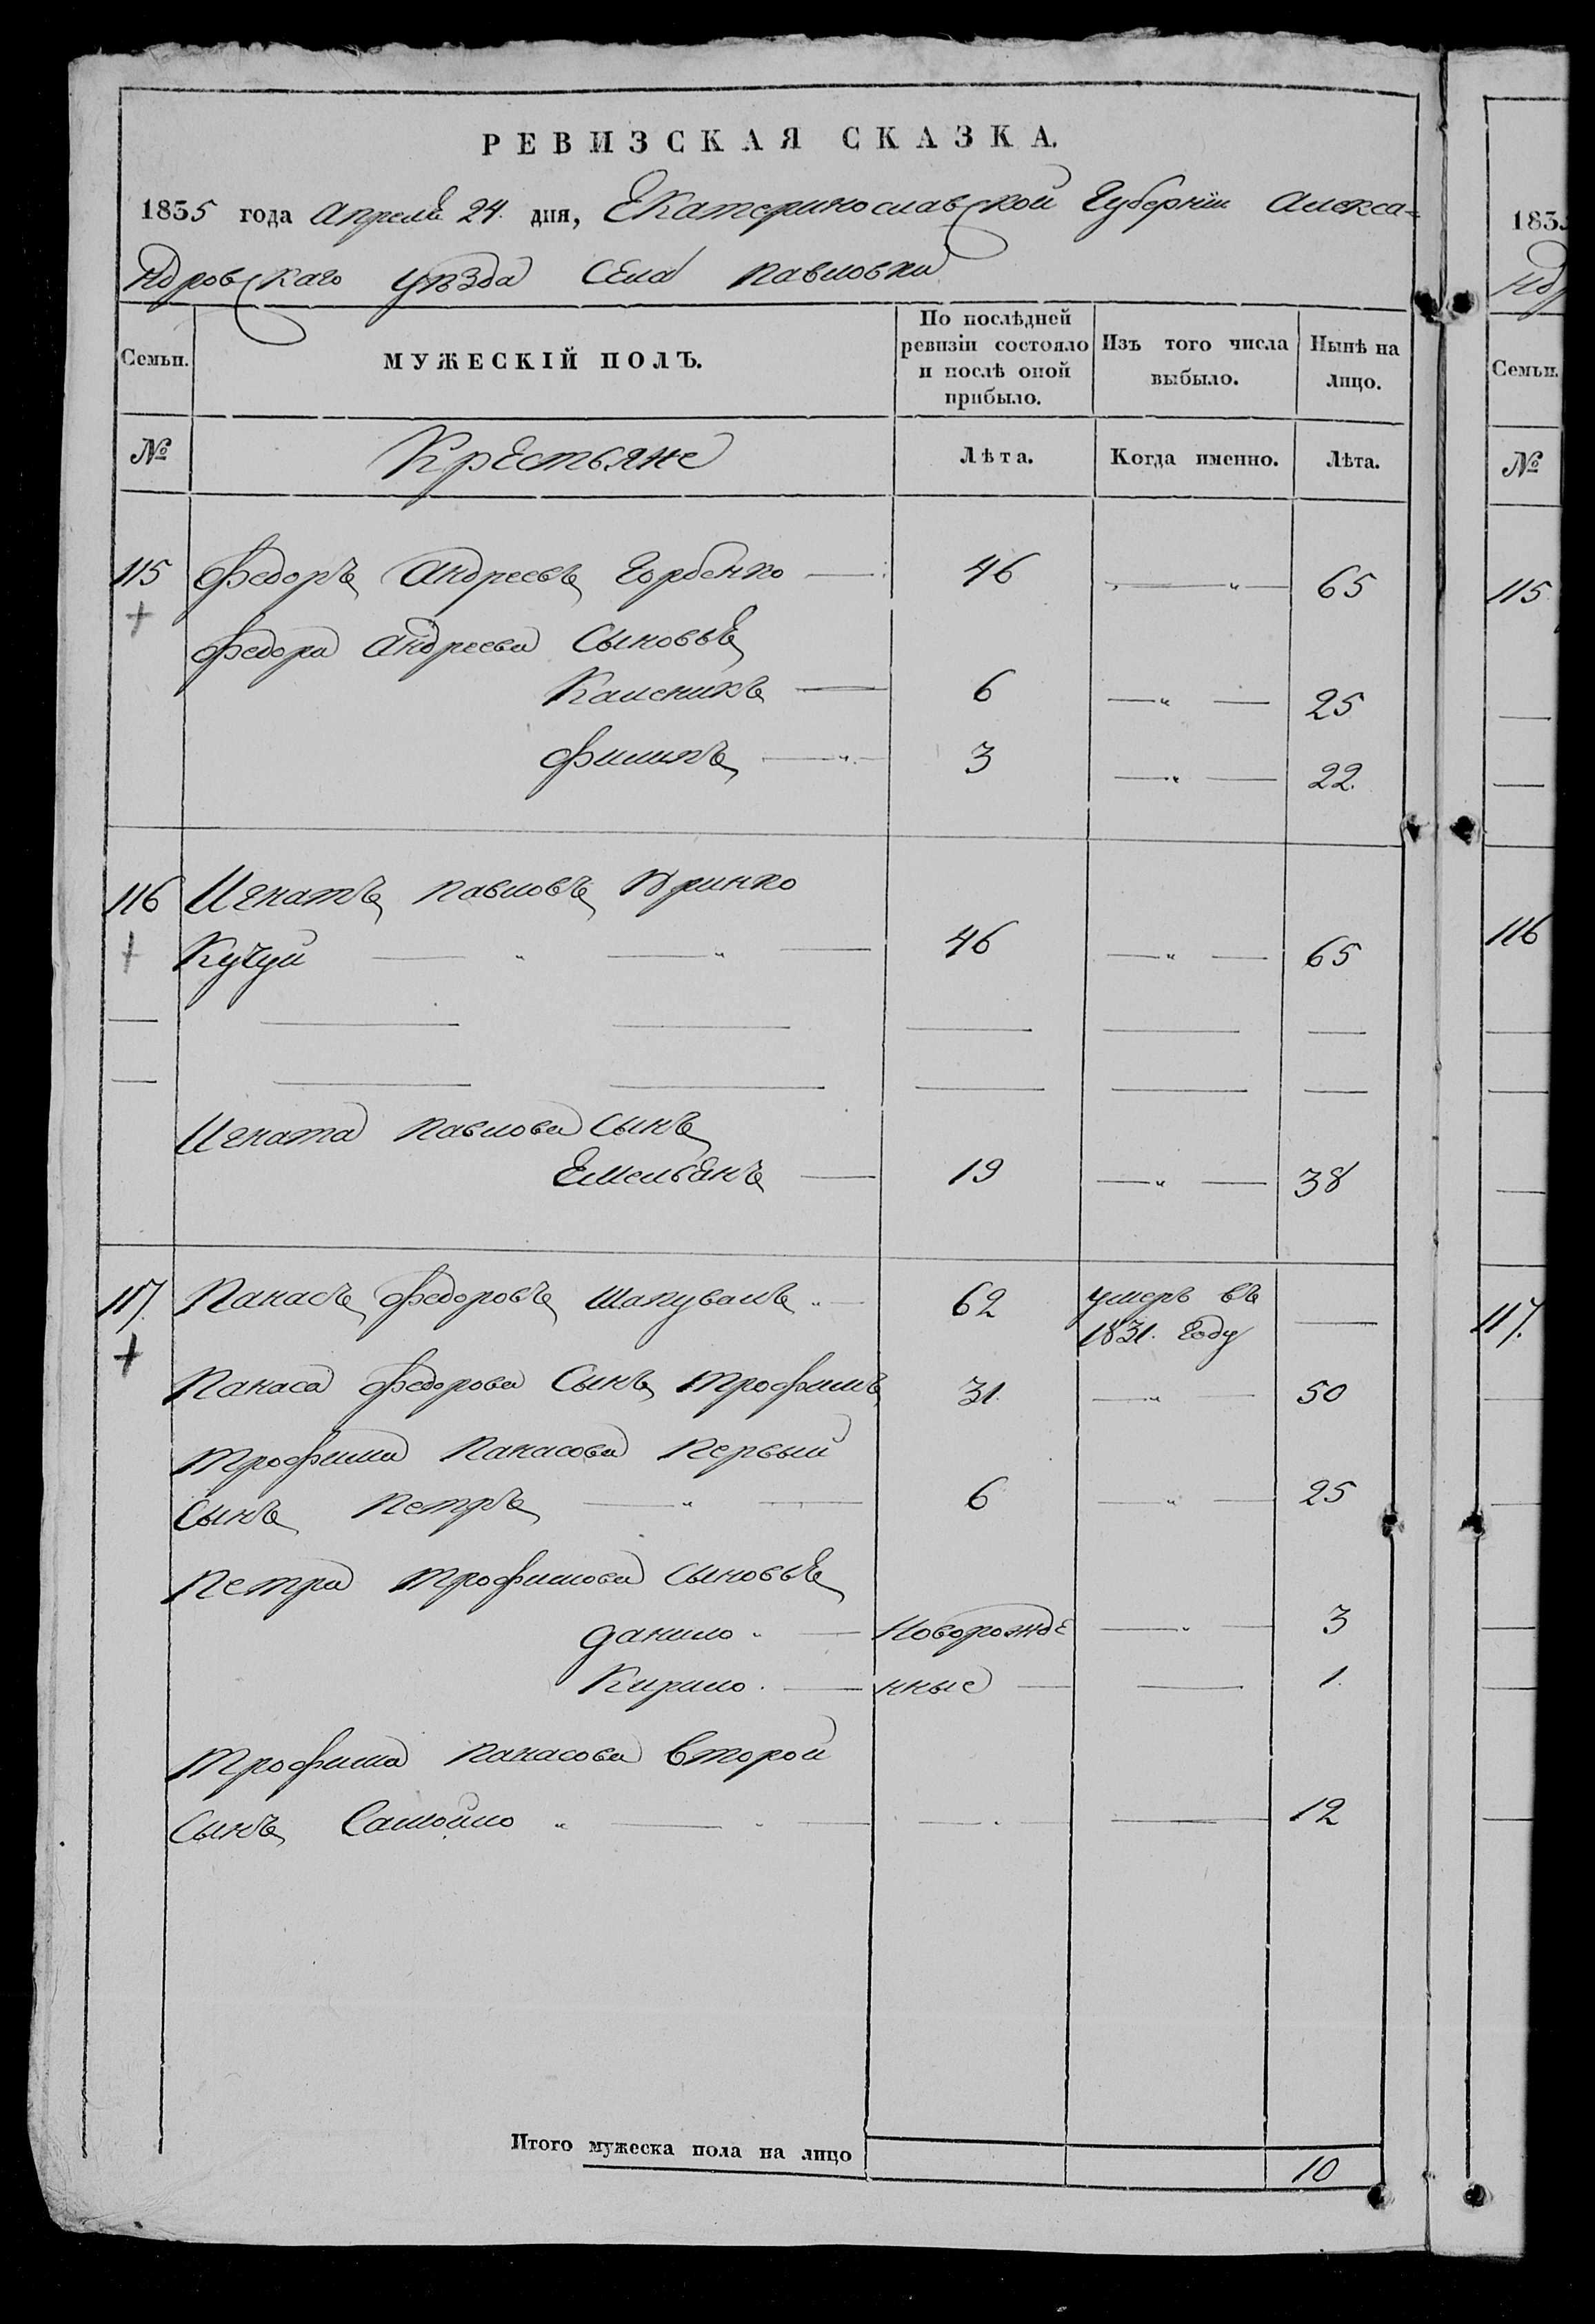 РЕВИЗСКАЯ СКАЗКА.
1835 года Апреля 24. дня, Екатеринославской Губернiи Алекса=
ндровскаго уѣзда Села Павловки
Семьи. МУЖЕСКIЙ ПОЛЪ. По послѣдней ревизiи состояло и послѣ оной прибыло. Изъ того числа выбыло. Нынѣ на лицо.
№ Крестьяне Лѣта. Когда именно. Лѣта.
115 Федоръ Андреевъ Горбенко 46 — " — 65
Федора Андреева Сыновья
Каленикъ — 6 — " — 25
Филипъ — " — 3 — " — 22.
116 Игнатъ Павловъ
Кучуй — " — " — 46 — " — 65
Игната Павлова Сынъ
Емельянъ — 19 — " — 38
117. Панасъ Федоровъ Шаповалъ " — 62 умеръ въ —
1831. Году
Панаса Федорова Сынъ Трофимъ 31. — " — 50
Трофима Панасова Первый
Сынъ Петръ — " — 6 — " — 25
Петра Трофимова Сыновья
Данило " — Новорожде — " — 3
Кирило. — нные — — 1.
Трофима Панасова второй
Сынъ Самойло " — " — — . — — 12
Итого мужеска пола на лицо 10
1835
ндр
Семьи.
№
115
116
117.